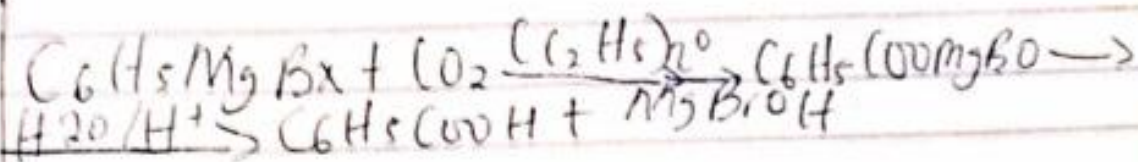 C6H5MgBx + CO2 (C2H5)2O → C6H5COOMgBO →
H20/H+ → C6H5COOH + MgBrOH